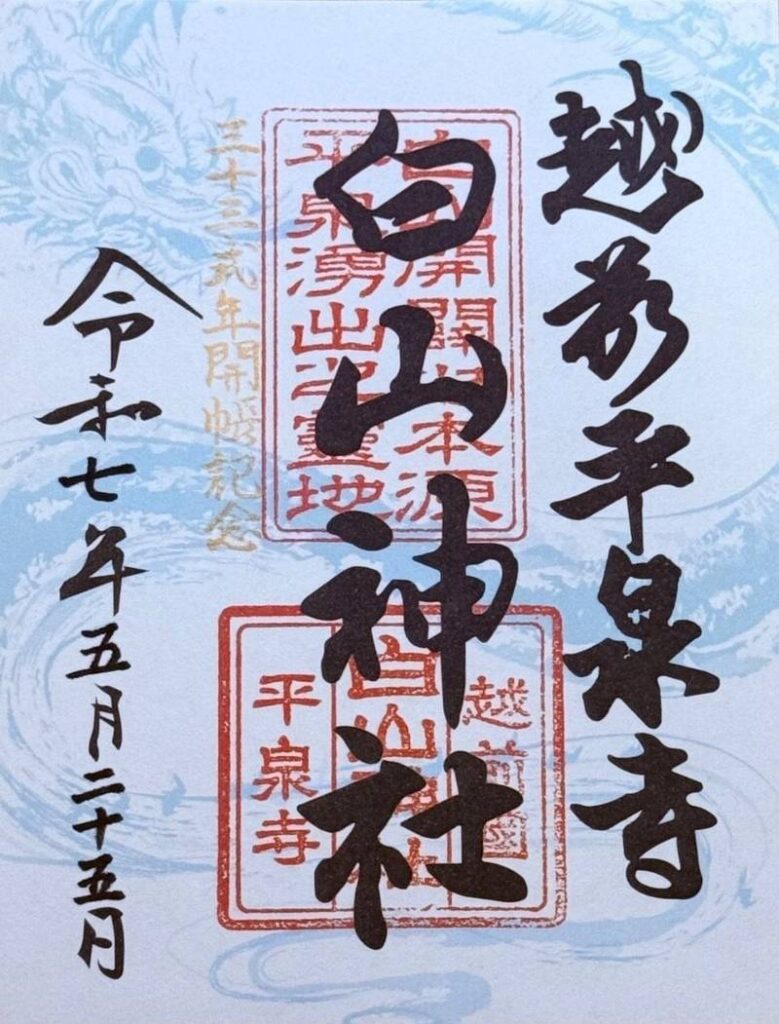 越前平泉寺
白山神社
白山開闢之本源
平泉湧出之靈地
越前國
白山神社
平泉寺
三十三式年開帳記念
令和七年五月二十五日